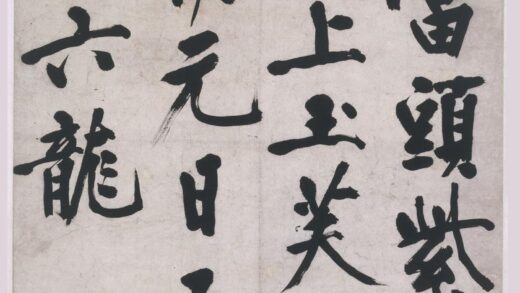 當頭紫
上玉芙
元日
六龍